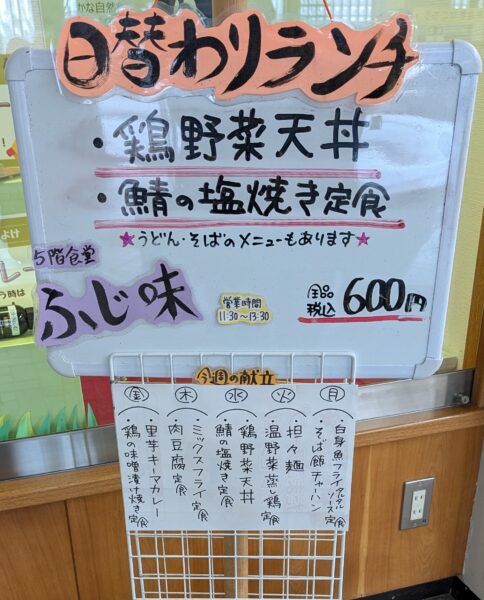 かな自然
日替わりランチ
・鶏野菜天丼
・鯖の塩焼き定食
★うどん・そばのメニューもあります★
5階食堂
ふじ味
営業時間
11:30～13:30
全品
税込
600円
今週の献立
月
・白身魚フライタルタルソース定食
・そば飯チャーハン
火
・担々麺
・温野菜蒸し鶏定食
水
・鶏野菜天丼
・鯖の塩焼き定食
木
・ミックスフライ定食
・肉豆腐定食
金
・里芋キーマカレー
・鶏の味噌漬け焼き定食